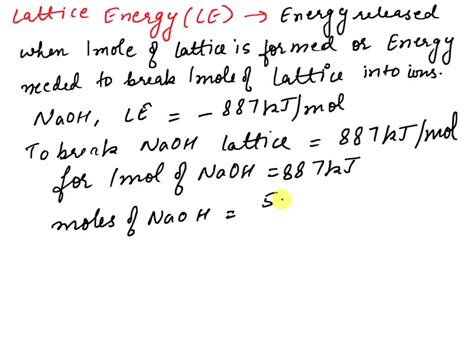 Lattice Energy (LE) → Energy released
when 1 mole of lattice is formed or Energy
needed to break 1 mole of lattice into ions.
NaOH, LE = - 887 kJ/mol
To break NaOH lattice = 887 kJ/mol
for 1 mol of NaOH = 887 kJ
moles of NaOH = 5.